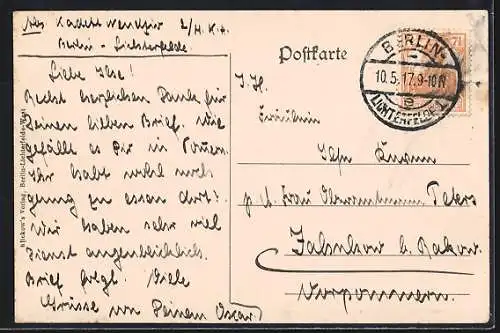 Abs. Kadett Wendhir 2/H.K.A.
Berlin - Lichterfelde
Liebe Ilse!
Recht herzlichen Dank für
Deinen lieben Brief. Wie
gefällt es Dir in Pommern.
Ihr habt wohl noch
genug zu essen dort?
Wir haben sehr viel
Dienst augenblicklich.
Brief folgt! Viele
Grüsse von Deinem Oscar
Blickow's Verlag, Berlin-Lichterfelde-West
Postkarte
BERLIN-
10.5.17.9-10N
e
LICHTERFELDE 1
7½
Fräulein
Ilse
p. Frau Peters
b.
Vorpommern.